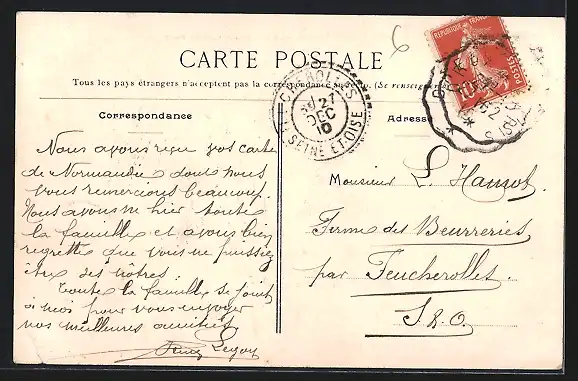 CARTE POSTALE
Tous les pays étrangers n'acceptent pas la correspondance au (Se renseigner
Correspondance
Adresse
REPUBLIQUE FRANÇAISE
POSTES
10
21
DEC
10
SEINE ET OISE
6
Nous avons reçu vos carte
de Normandie dont nous
vous remercions beaucoup.
Nous avons vu hier toute
la famille et avons bien
regretté que vous ne puissiez
être des nôtres.
Toute la famille se joint
à moi pour vous envoyer
nos meilleures amitiés
Legou
Monsieur L. Hansot
Ferme des Beurreries
par Feucherolles.
S & O.